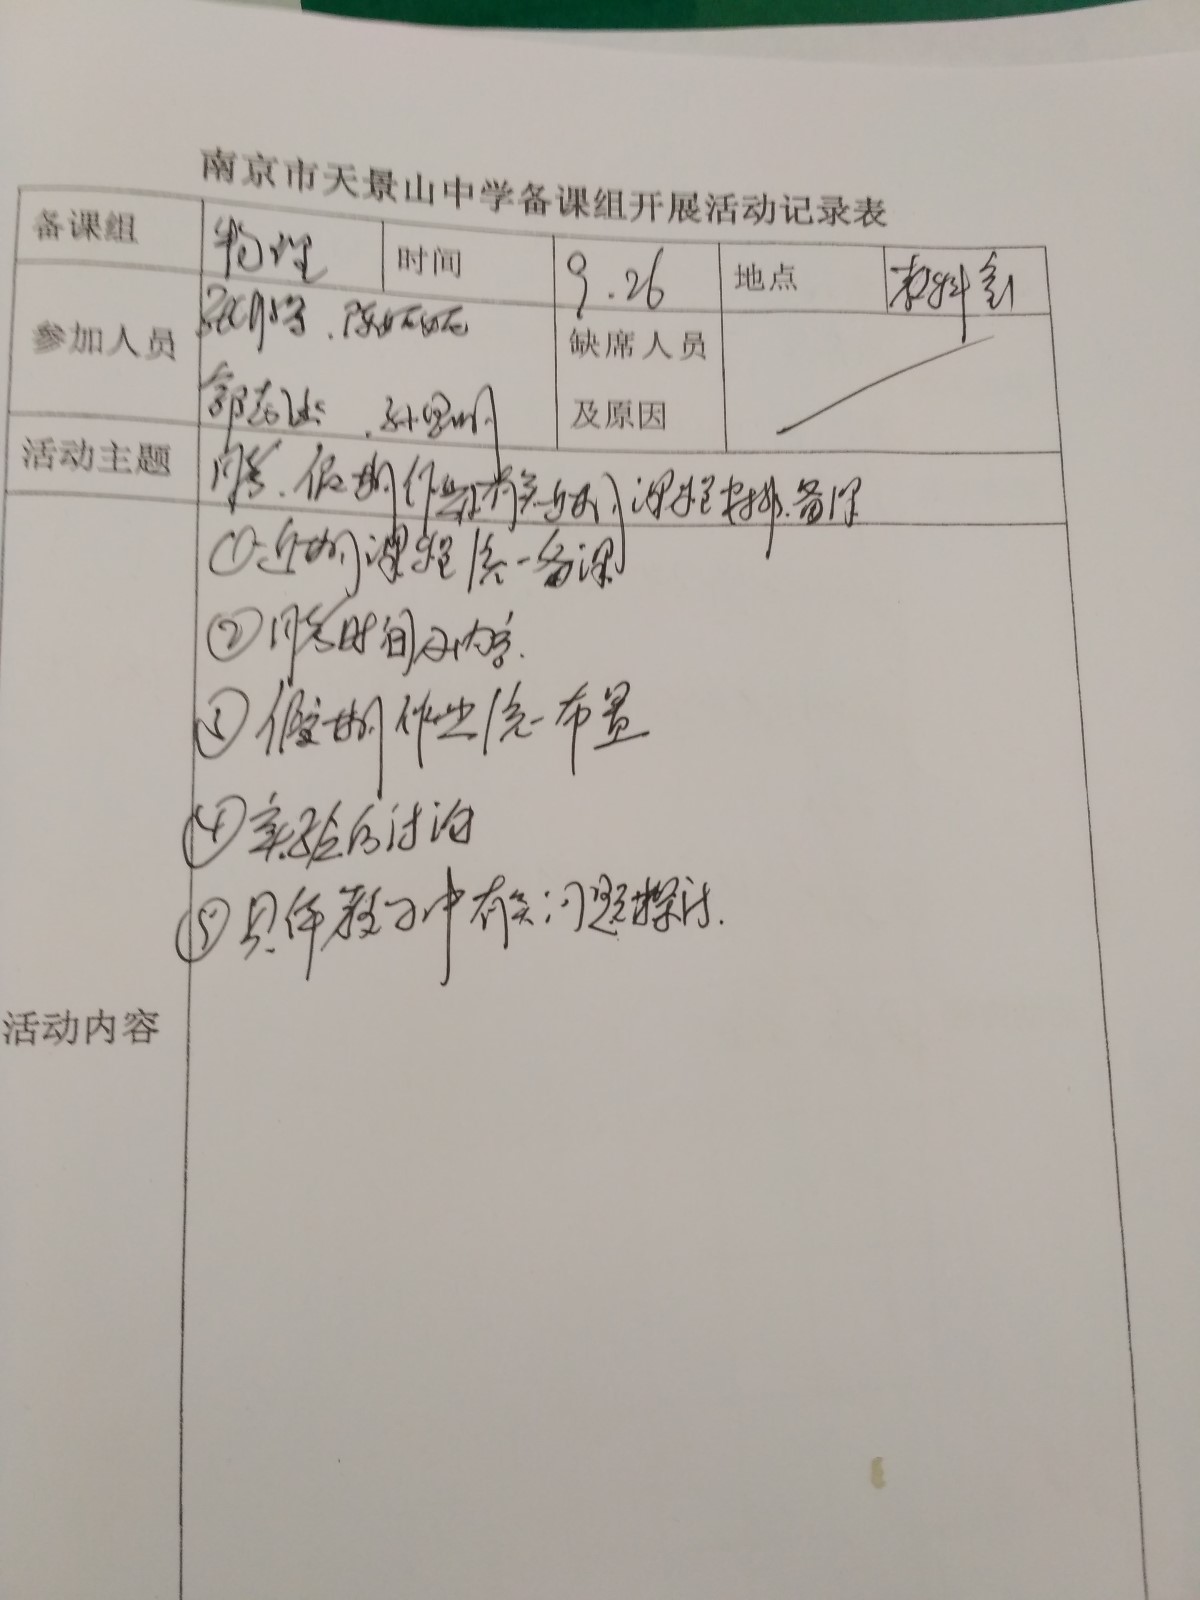 南京市天景山中学备课组开展活动记录表
备课组 物理 时间 9.26 地点
参加人员 陈 缺席人员
郭志 孙 及原因
活动主题 周考、假期作业及有关近期课程安排、备课
①近期课程统一备课
②周考时间及内容.
③假期作业统一布置
④实验的讨论
⑤具体教学中有关问题探讨.
活动内容